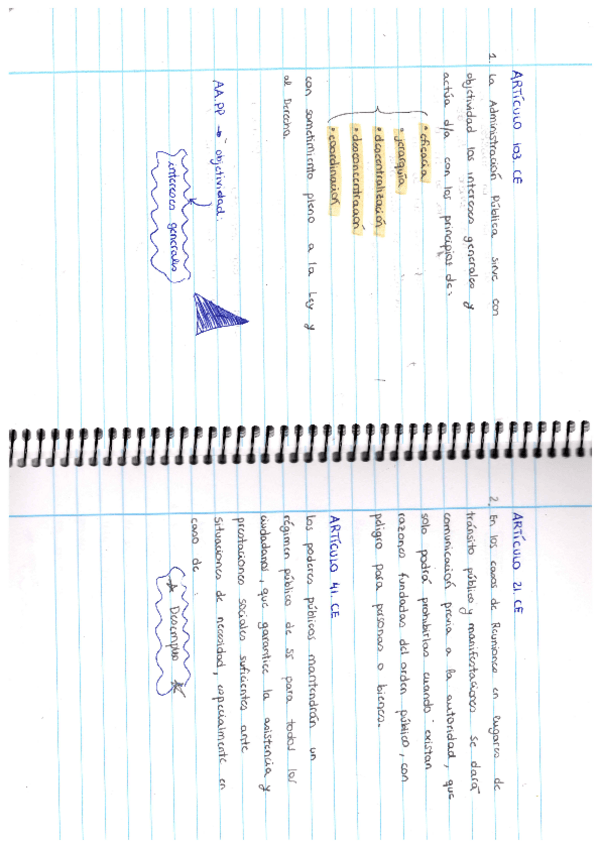 ARTÍCULO 103. CE
1. La Administración Pública sirve con
objetividad los intereses generales y
actúa d/a con los principios de:
• eficacia
• jerarquía
• descentralización
• desconcentración
• coordinación
con sometimiento pleno a la Ley y
al Derecho.
AA.PP → objetividad.
intereses generales
ARTÍCULO 21. CE
2. En los casos de Reuniones en lugares de
tránsito público y manifestaciones se dará
comunicación previa a la autoridad, que
solo podrá prohibirlas cuando existan
razones fundadas del orden público, con
peligro para personas o bienes.
ARTÍCULO 41. CE
Los poderes públicos mantendrán un
régimen público de SS para todos los
ciudadanos, que garantice la asistencia y
prestaciones sociales suficientes ante
situaciones de necesidad, especialmente en
caso de:
Desempleo